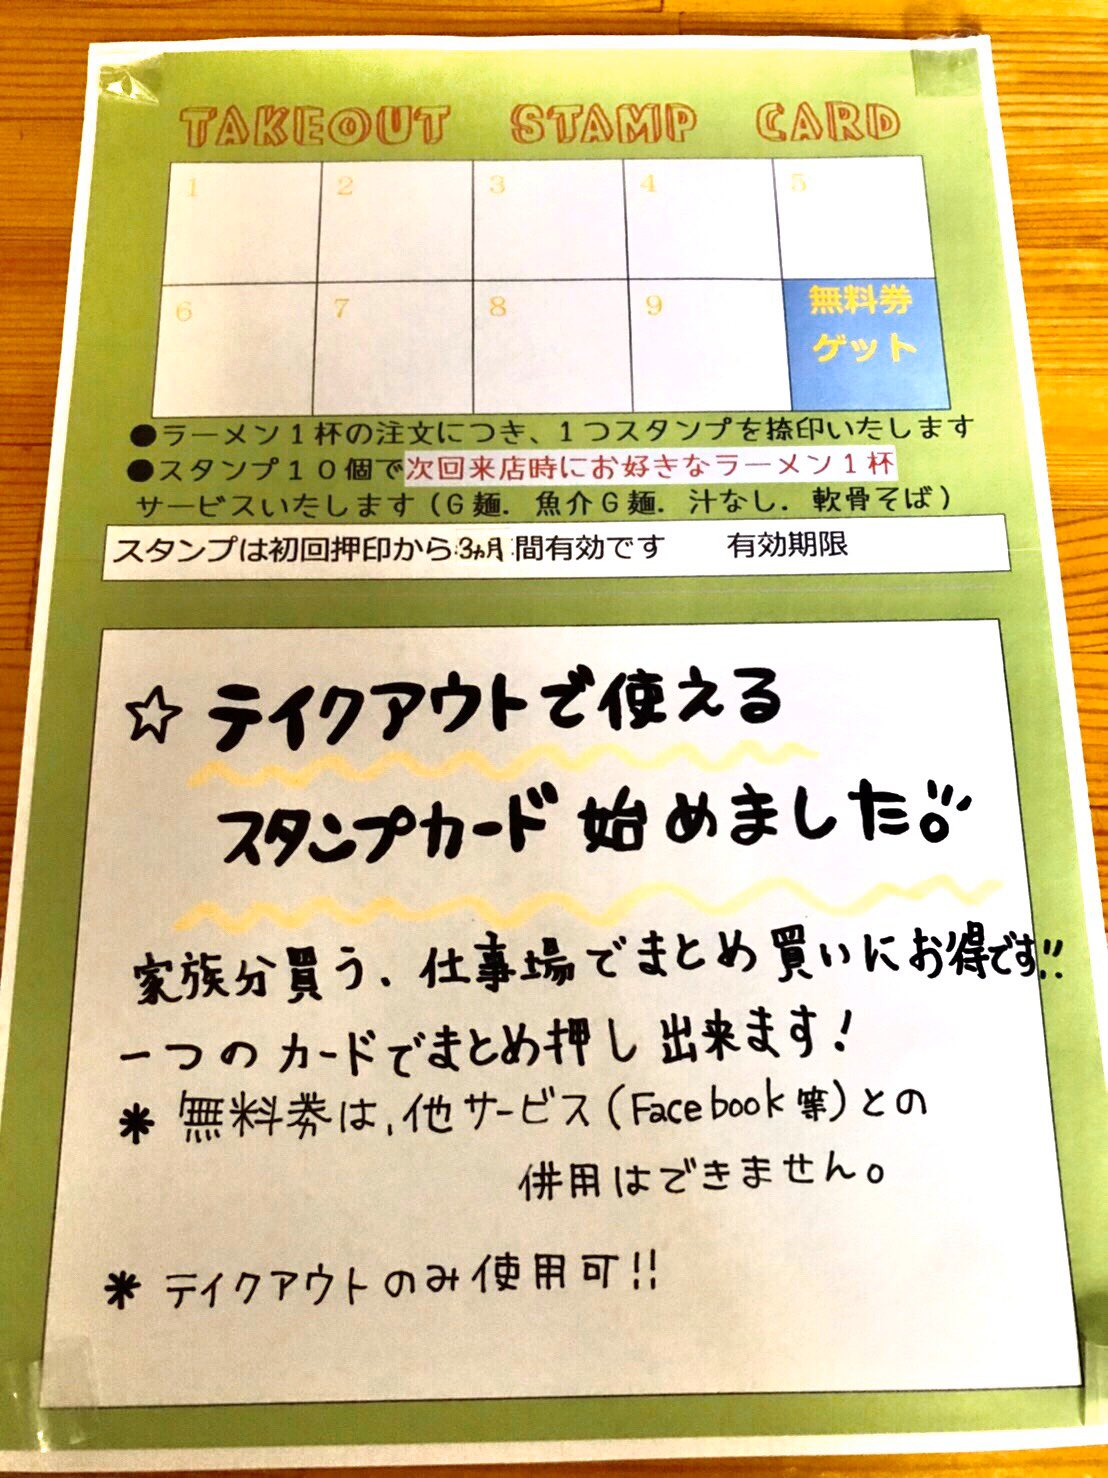 TAKEOUT STAMP CARD
1 2 3 4 5
6 7 8 9 無料券
ゲット
●ラーメン1杯の注文につき、1つスタンプを捺印いたします
●スタンプ10個で次回来店時にお好きなラーメン1杯
サービスいたします(G麺. 魚介G麺. 汁なし. 軟骨そば)
スタンプは初回押印から3ヵ月間有効です 有効期限
☆テイクアウトで使える
スタンプカード始めました。
家族分買う、仕事場でまとめ買いにお得です!!
一つのカードでまとめ押し出来ます!
* 無料券は、他サービス(Facebook等)との
併用はできません。
* テイクアウトのみ使用可!!